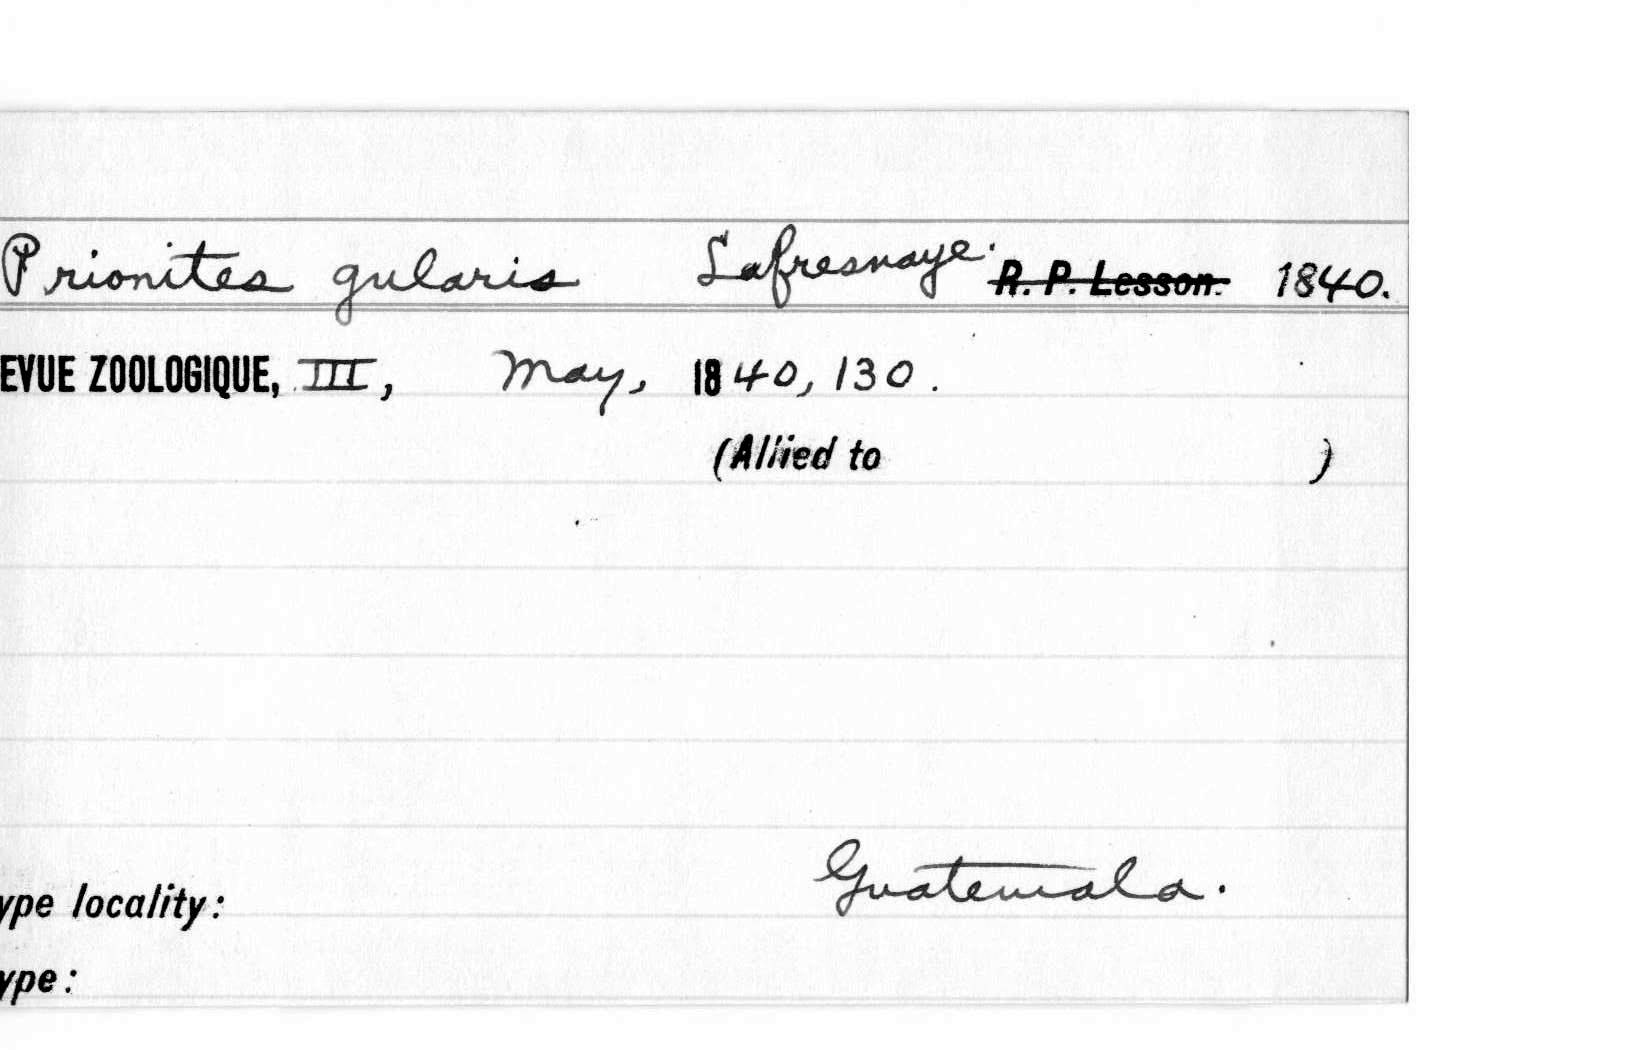 Prionites gularis Lafresnaye. R. P. Lesson. 1840.
EVUE ZOOLOGIQUE, III, May, 1840, 130.
(Allied to )
Guatemala.
ype locality:
ype: